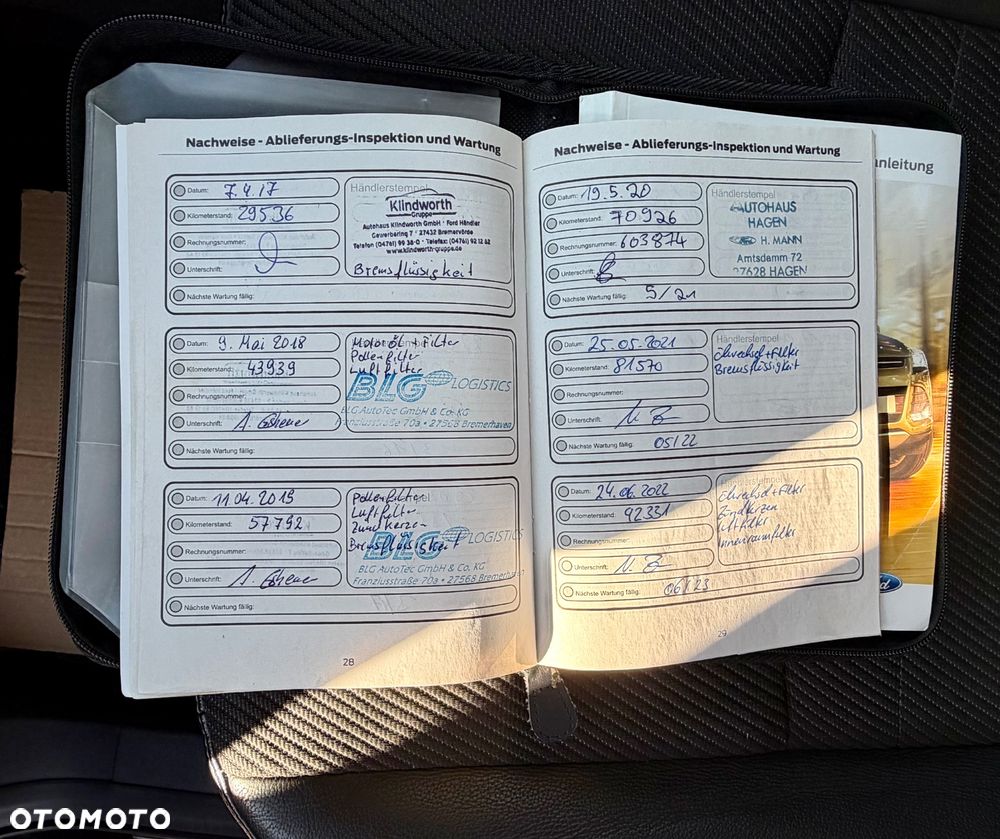 Nachweise - Ablieferungs-Inspektion und Wartung
Datum: 7.4.17
Kilometerstand: 29536
Rechnungsnummer:
Unterschrift:
Nächste Wartung fällig:
Händlerstempel
Klindworth
Gruppe
Autohaus Klindworth GmbH · Ford Händler
Gewerbering 7 · 27432 Bremervörde
Telefon (04761) 99 38-0 · Telefax: (04761) 92 12 62
www.klindworth-gruppe.de
Bremsflüssigkeit
Datum: 9. Mai 2018
Kilometerstand: 43939
Rechnungsnummer:
Unterschrift:
Nächste Wartung fällig:
Motoröl + Filter
Pollenfilter
Luftfilter
BLG LOGISTICS
BLG AutoTec GmbH & Co. KG
Franziusstraße 70a • 27568 Bremerhaven
Datum: 11.04.2019
Kilometerstand: 57792
Rechnungsnummer:
Unterschrift:
Nächste Wartung fällig:
Pollenfilter
Luftfilter
Zündkerzen
Bremsflüssigkeit
BLG LOGISTICS
BLG AutoTec GmbH & Co. KG
Franziusstraße 70a • 27568 Bremerhaven
28
Nachweise - Ablieferungs-Inspektion und Wartung
Datum: 19.5.20
Kilometerstand: 70926
Rechnungsnummer: 603874
Unterschrift:
Nächste Wartung fällig: 5/21
Händlerstempel
AUTOHAUS
HAGEN
H. MANN
Amtsdamm 72
27628 HAGEN
Datum: 25.05.2021
Kilometerstand: 81570
Rechnungsnummer:
Unterschrift:
Nächste Wartung fällig: 05/22
Händlerstempel
Ölwechsel + Filter
Bremsflüssigkeit
Datum: 24.06.2022
Kilometerstand: 92331
Rechnungsnummer:
Unterschrift:
Nächste Wartung fällig: 06/23
Händlerstempel
Ölwechsel + Filter
Zündkerzen
Luftfilter
Innenraumfilter
29
anleitung
OTOMOTO